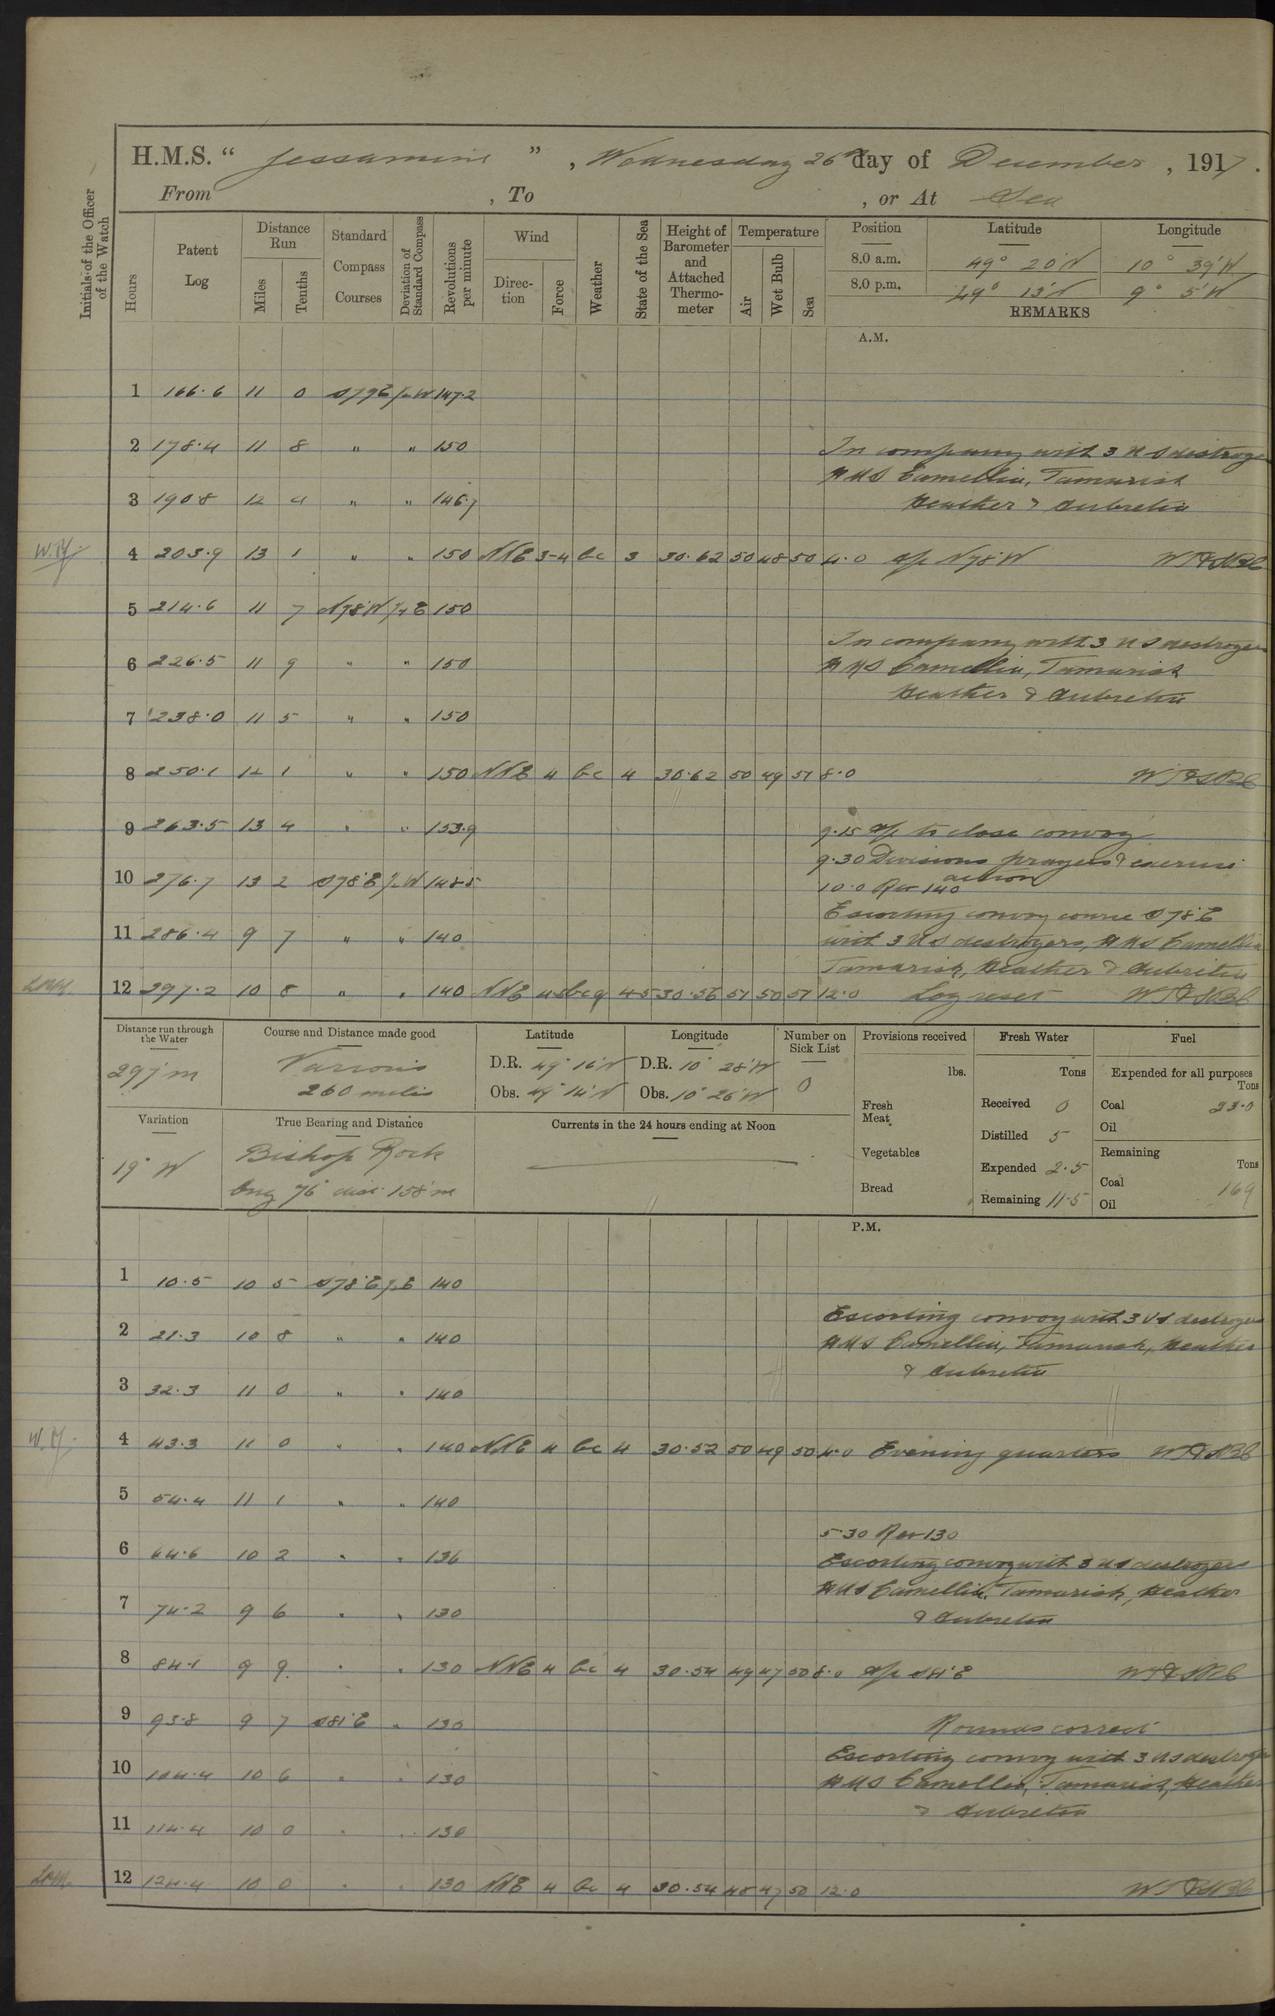 H.M.S. “ Jessamine ” , Wednesday 26th day of December , 1917 .
From , To , or At Sea
Initials of the Officer of the Watch
Hours
Patent Log
Distance Run
Miles
Tenths
Standard Compass Courses
Deviation of Standard Compass
Revolutions per minute
Wind
Direction
Force
Weather
State of the Sea
Height of Barometer and Attached Thermometer
Temperature
Air
Wet Bulb
Sea
Position Latitude Longitude
8.0 a.m. 49° 20'N 10° 39'W
8.0 p.m. 49° 13'N 9° 5'W
REMARKS
A.M.
1 166.6 11 0 S79E W 147.2
2 178.4 11 8 " " 150 In company with 3 US destroyers
HMS Camellia, Tamarisk
3 190.8 12 4 " " 146.7 Heather & Aubretia
4 203.9 13 1 " " 150 NNE 3-4 bc 3 30.62 50 48 50 4.0 a/c N78°W
5 214.6 11 7 N78°W E 150
In company with 3 US destroyers
6 226.5 11 9 " " 150 HMS Camellia, Tamarisk
Heather & Aubretia
7 238.0 11 5 " " 150
8 250.1 12 1 " " 150 NNE 4 bc 4 30.62 50 49 51 8.0
9 263.5 13 4 " " 153.9 9.15 a/c to close convoy
9.30 Divisions prayers & exercise action
10 276.7 13 2 S78°E W 148.5 10.0 Rev 140
Escorting convoy course S78°E
11 286.4 9 7 " " 140 with 3 US destroyers, HMS Camellia
Tamarisk, Heather & Aubretia
12 297.2 10 8 " " 140 NNE 4-5 bcq 4-5 30.56 51 50 51 12.0 Log reset
Distance run through the Water
297'm
Course and Distance made good
Various
260 miles
Latitude
D.R. 49° 16'N
Obs. 49° 14'N
Longitude
D.R. 10° 28'W
Obs. 10° 26'W
Number on Sick List
0
Provisions received
lbs.
Fresh Meat
Vegetables
Bread
Fresh Water
Tons
Received 0
Distilled 5
Expended 2.5
Remaining 11.5
Fuel
Expended for all purposes
Tons
Coal 23.0
Oil
Remaining
Tons
Coal 169
Oil
Variation
19° W
True Bearing and Distance
Bishop Rock
brg 76° dist 158'm
Currents in the 24 hours ending at Noon
P.M.
1 10.5 10 5 S78°E E 140
Escorting convoy with 3 US destroyers
2 21.3 10 8 " " 140 HMS Camellia, Tamarisk, Heather
& Aubretia
3 32.3 11 0 " " 140
4 43.3 11 0 " " 140 NNE 4 bc 4 30.52 50 49 50 4.0 Evening quarters
5 54.4 11 1 " " 140
5.30 Rev 130
6 64.6 10 2 " " 136 Escorting convoy with 3 US destroyers
HMS Camellia, Tamarisk, Heather
7 74.2 9 6 " " 130 & Aubretia
8 84.1 9 9 " " 130 NNE 4 bc 4 30.54 49 47 50 8.0 a/c S81°E
9 93.8 9 7 S81°E " 130 Rounds correct
Escorting convoy with 3 US destroyers
10 104.4 10 6 " " 130 HMS Camellia, Tamarisk, Heather
& Aubretia
11 114.4 10 0 " " 130
12 124.4 10 0 " " 130 NNE 4 bc 4 30.54 48 47 50 12.0